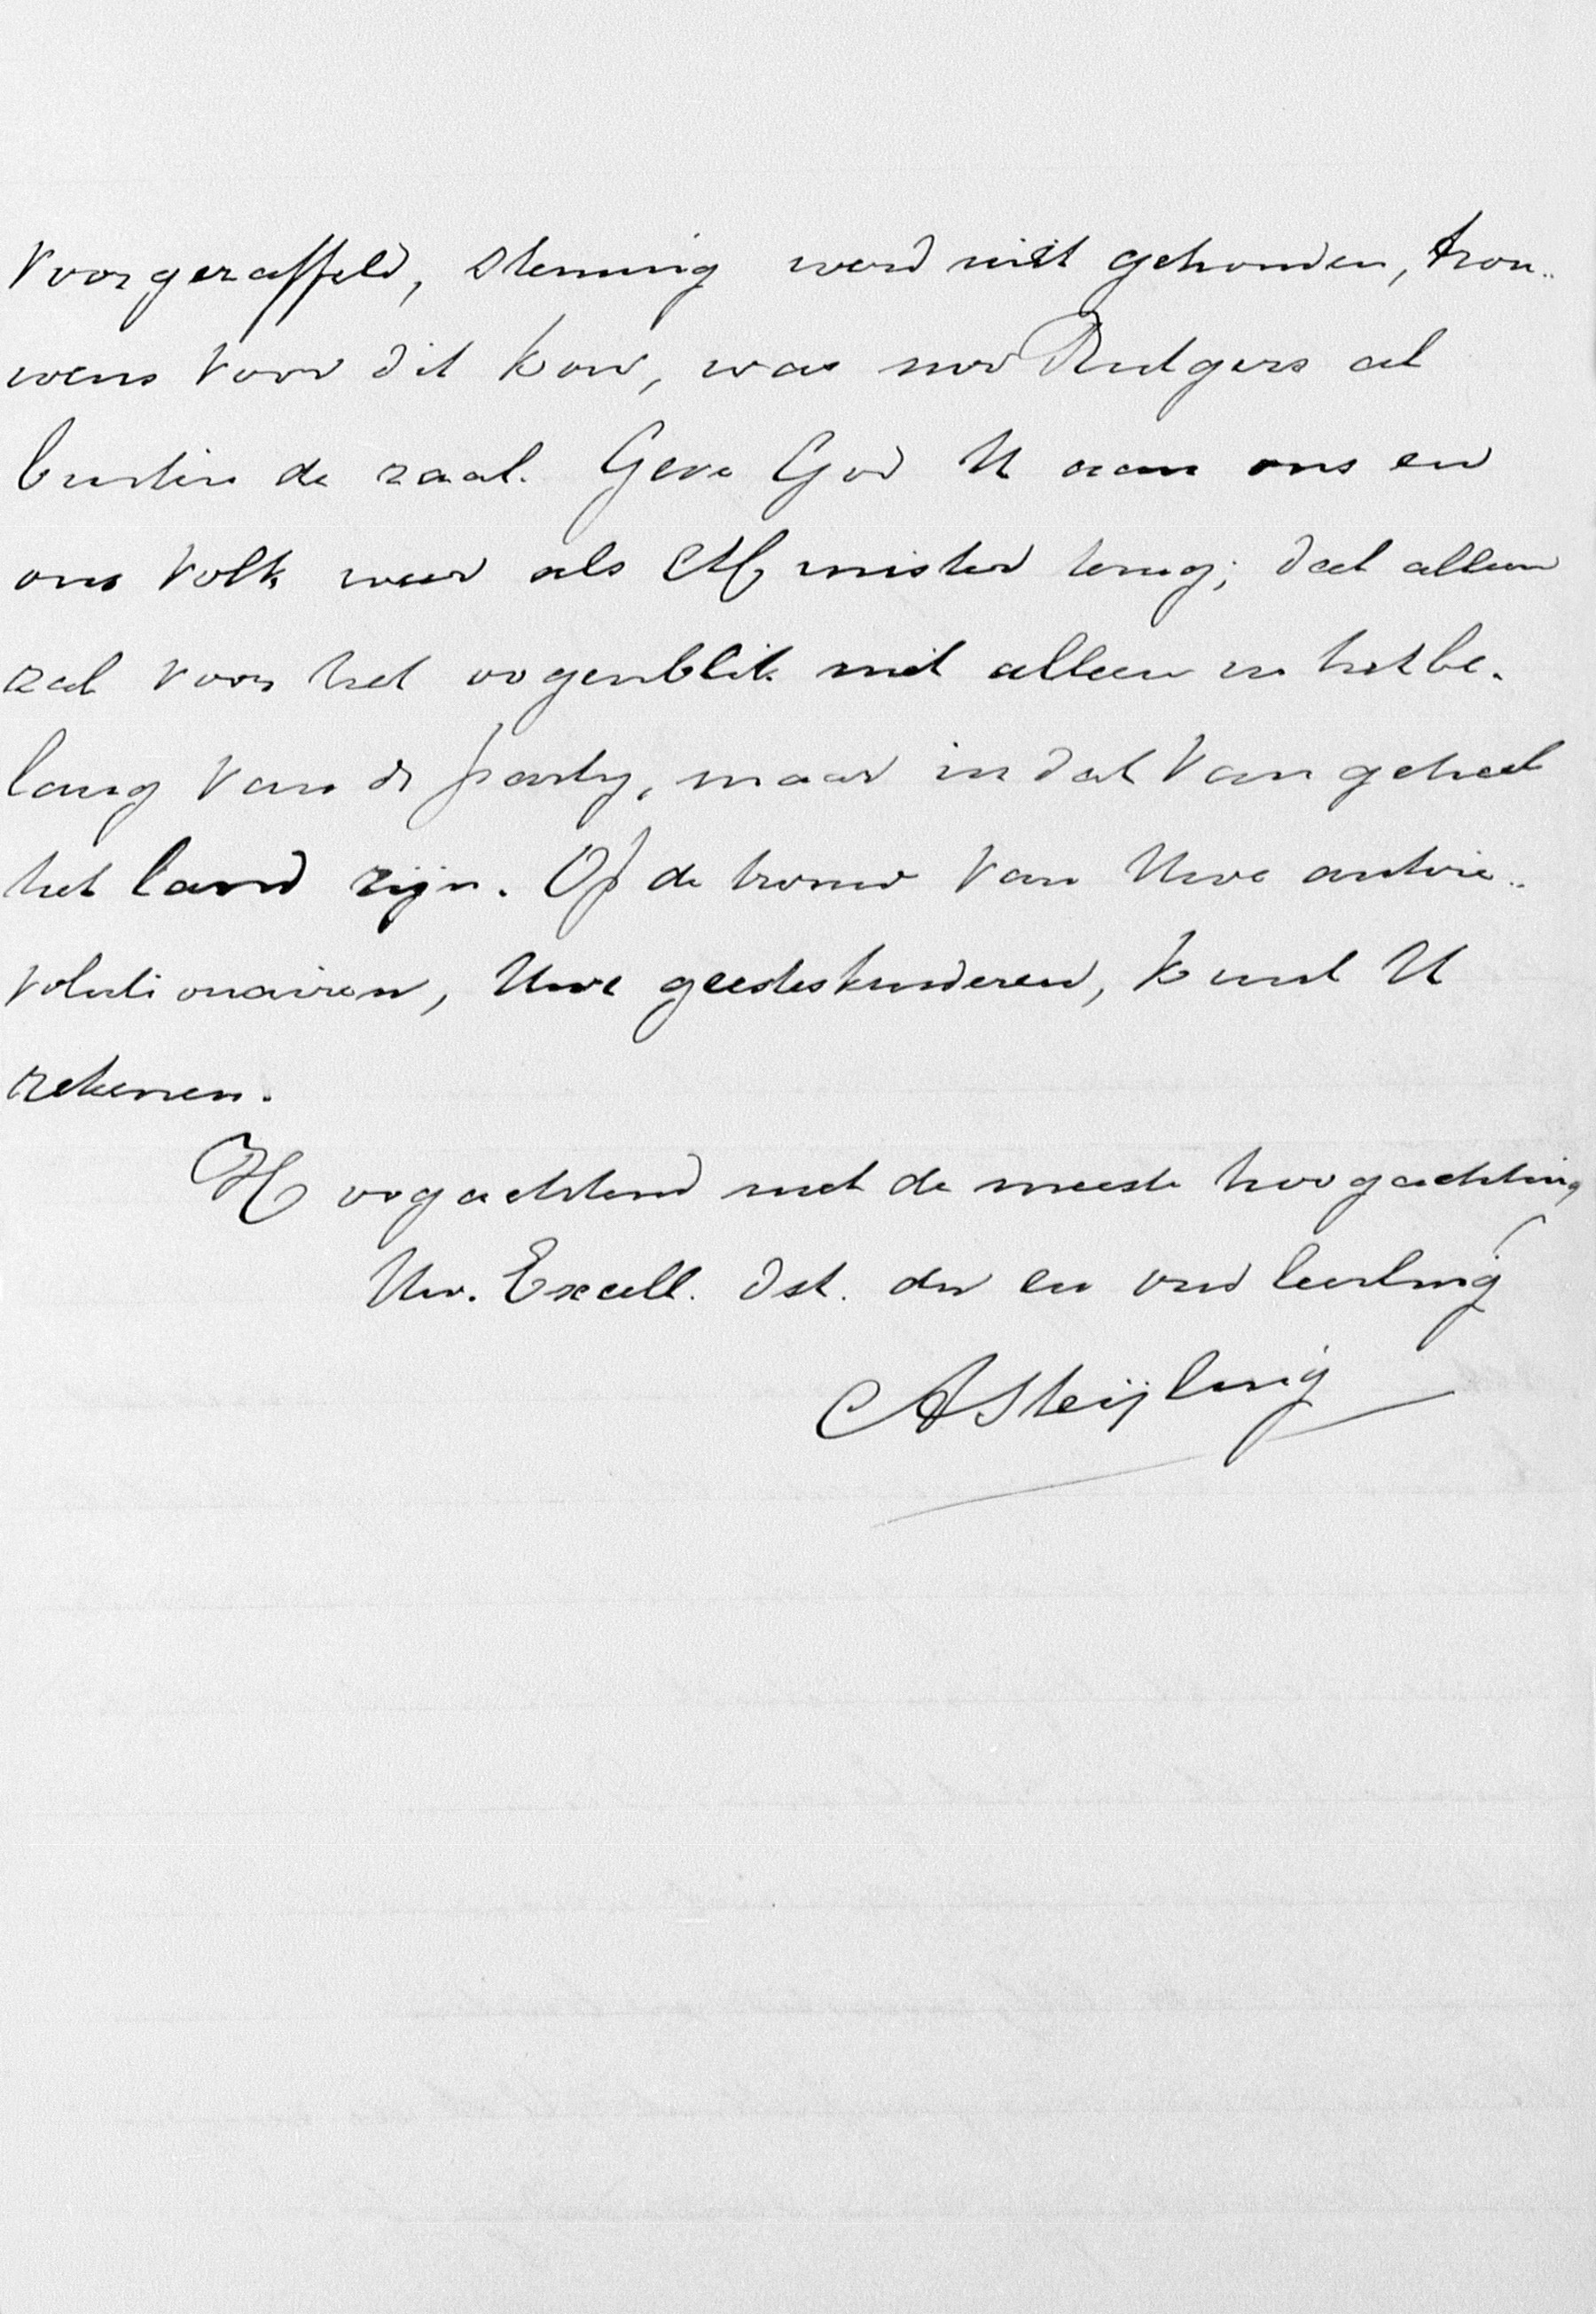 voorgeraffeld, stemming werd niet gehouden, trou-
wens voor dit kon, was mr Rutgers al
buiten de zaal. Geve God U aan ons en
ons volk weer als Minister terug; dat alleen
zal voor het oogenblik niet alleen in het be-
lang van de party, maar in dat van geheel
het land zijn. Op de trouw van Uwe antire-
volutionairen, Uwe geesteskinderen, kunt U
rekenen.
Hoogachtend met de meeste hoogachting
Uw. Excell. dst. dr en oud leerling
A Steijling